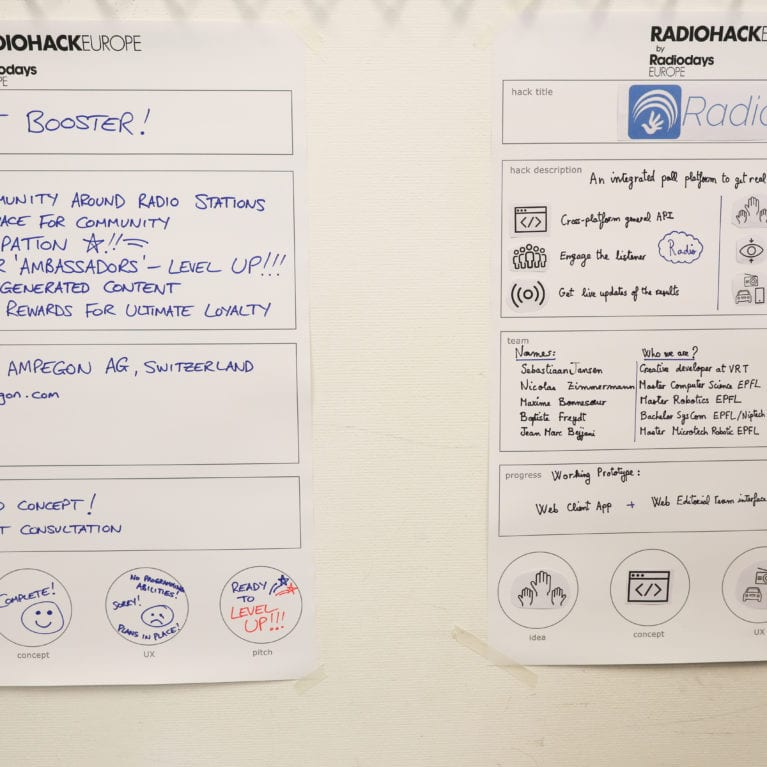 DIOHACKEUROPE
odays
PE
T BOOSTER!
MUNITY AROUND RADIO STATIONS
ACE FOR COMMUNITY
PATION !!
R 'AMBASSADORS' – LEVEL UP!!!
GENERATED CONTENT
REWARDS FOR ULTIMATE LOYALTY
AMPEGON AG, SWITZERLAND
gon.com
D CONCEPT!
T CONSULTATION
COMPLETE!
concept
NO PROGRAMMING
ABILITIES!
SORRY!
PLANS IN PLACE!
UX
READY
TO
LEVEL
UP!!!
pitch
RADIOHACKE
by
Radiodays
EUROPE
hack title
Radio
hack description
An integrated poll platform to get real
Cross-platform general API
Engage the listener
Radio
Get live updates of the results
team
Names: Who we are?
Sebastiaan Jansen Creative developer at VRT
Nicolas Zimmermann Master Computer Science EPFL
Maxime Bonnesoeur Master Robotics EPFL
Baptiste Freydt Bachelor SysCom EPFL/Niptech
Jean Marc Bejjani Master Microtech Robotic EPFL
progress Working Prototype:
Web Client App + Web Editorial Team interface
idea
concept
UX